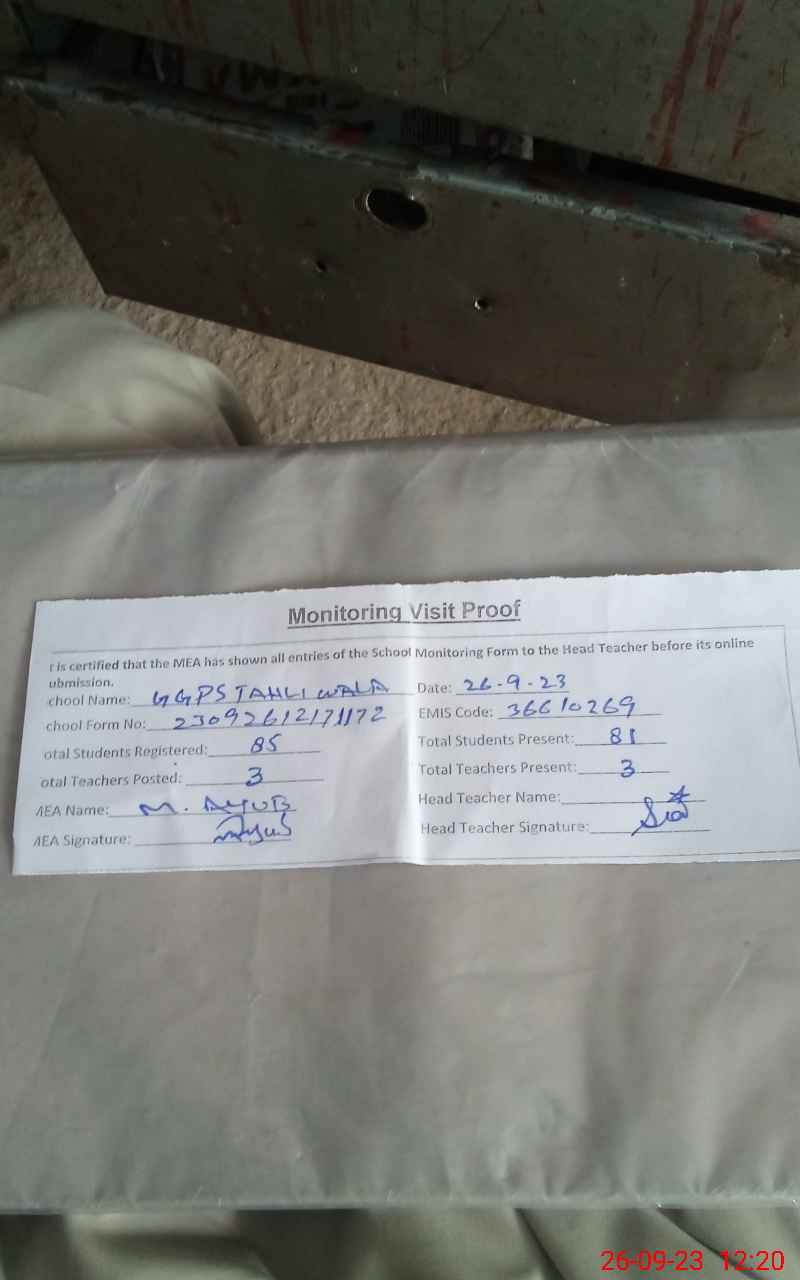 Monitoring Visit Proof
t is certified that the MEA has shown all entries of the School Monitoring Form to the Head Teacher before its online
ubmission.
chool Name: GGPS TAHLI WALA Date: 26-9-23
chool Form No: 23092612171172 EMIS Code: 36610269
otal Students Registered: 85 Total Students Present: 81
otal Teachers Posted: 3 Total Teachers Present: 3
MEA Name: M. AYUB Head Teacher Name:
MEA Signature: Ayub Head Teacher Signature:
26-09-23 12:20